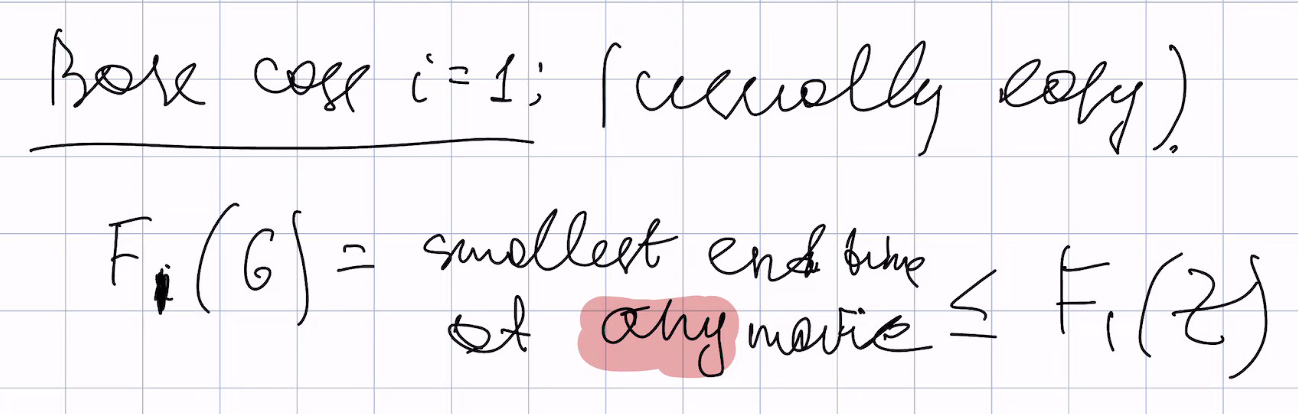 Base case i=1; (usually easy).
F₁(G) = smallest end time
of any movie ≤ F₁(Z)